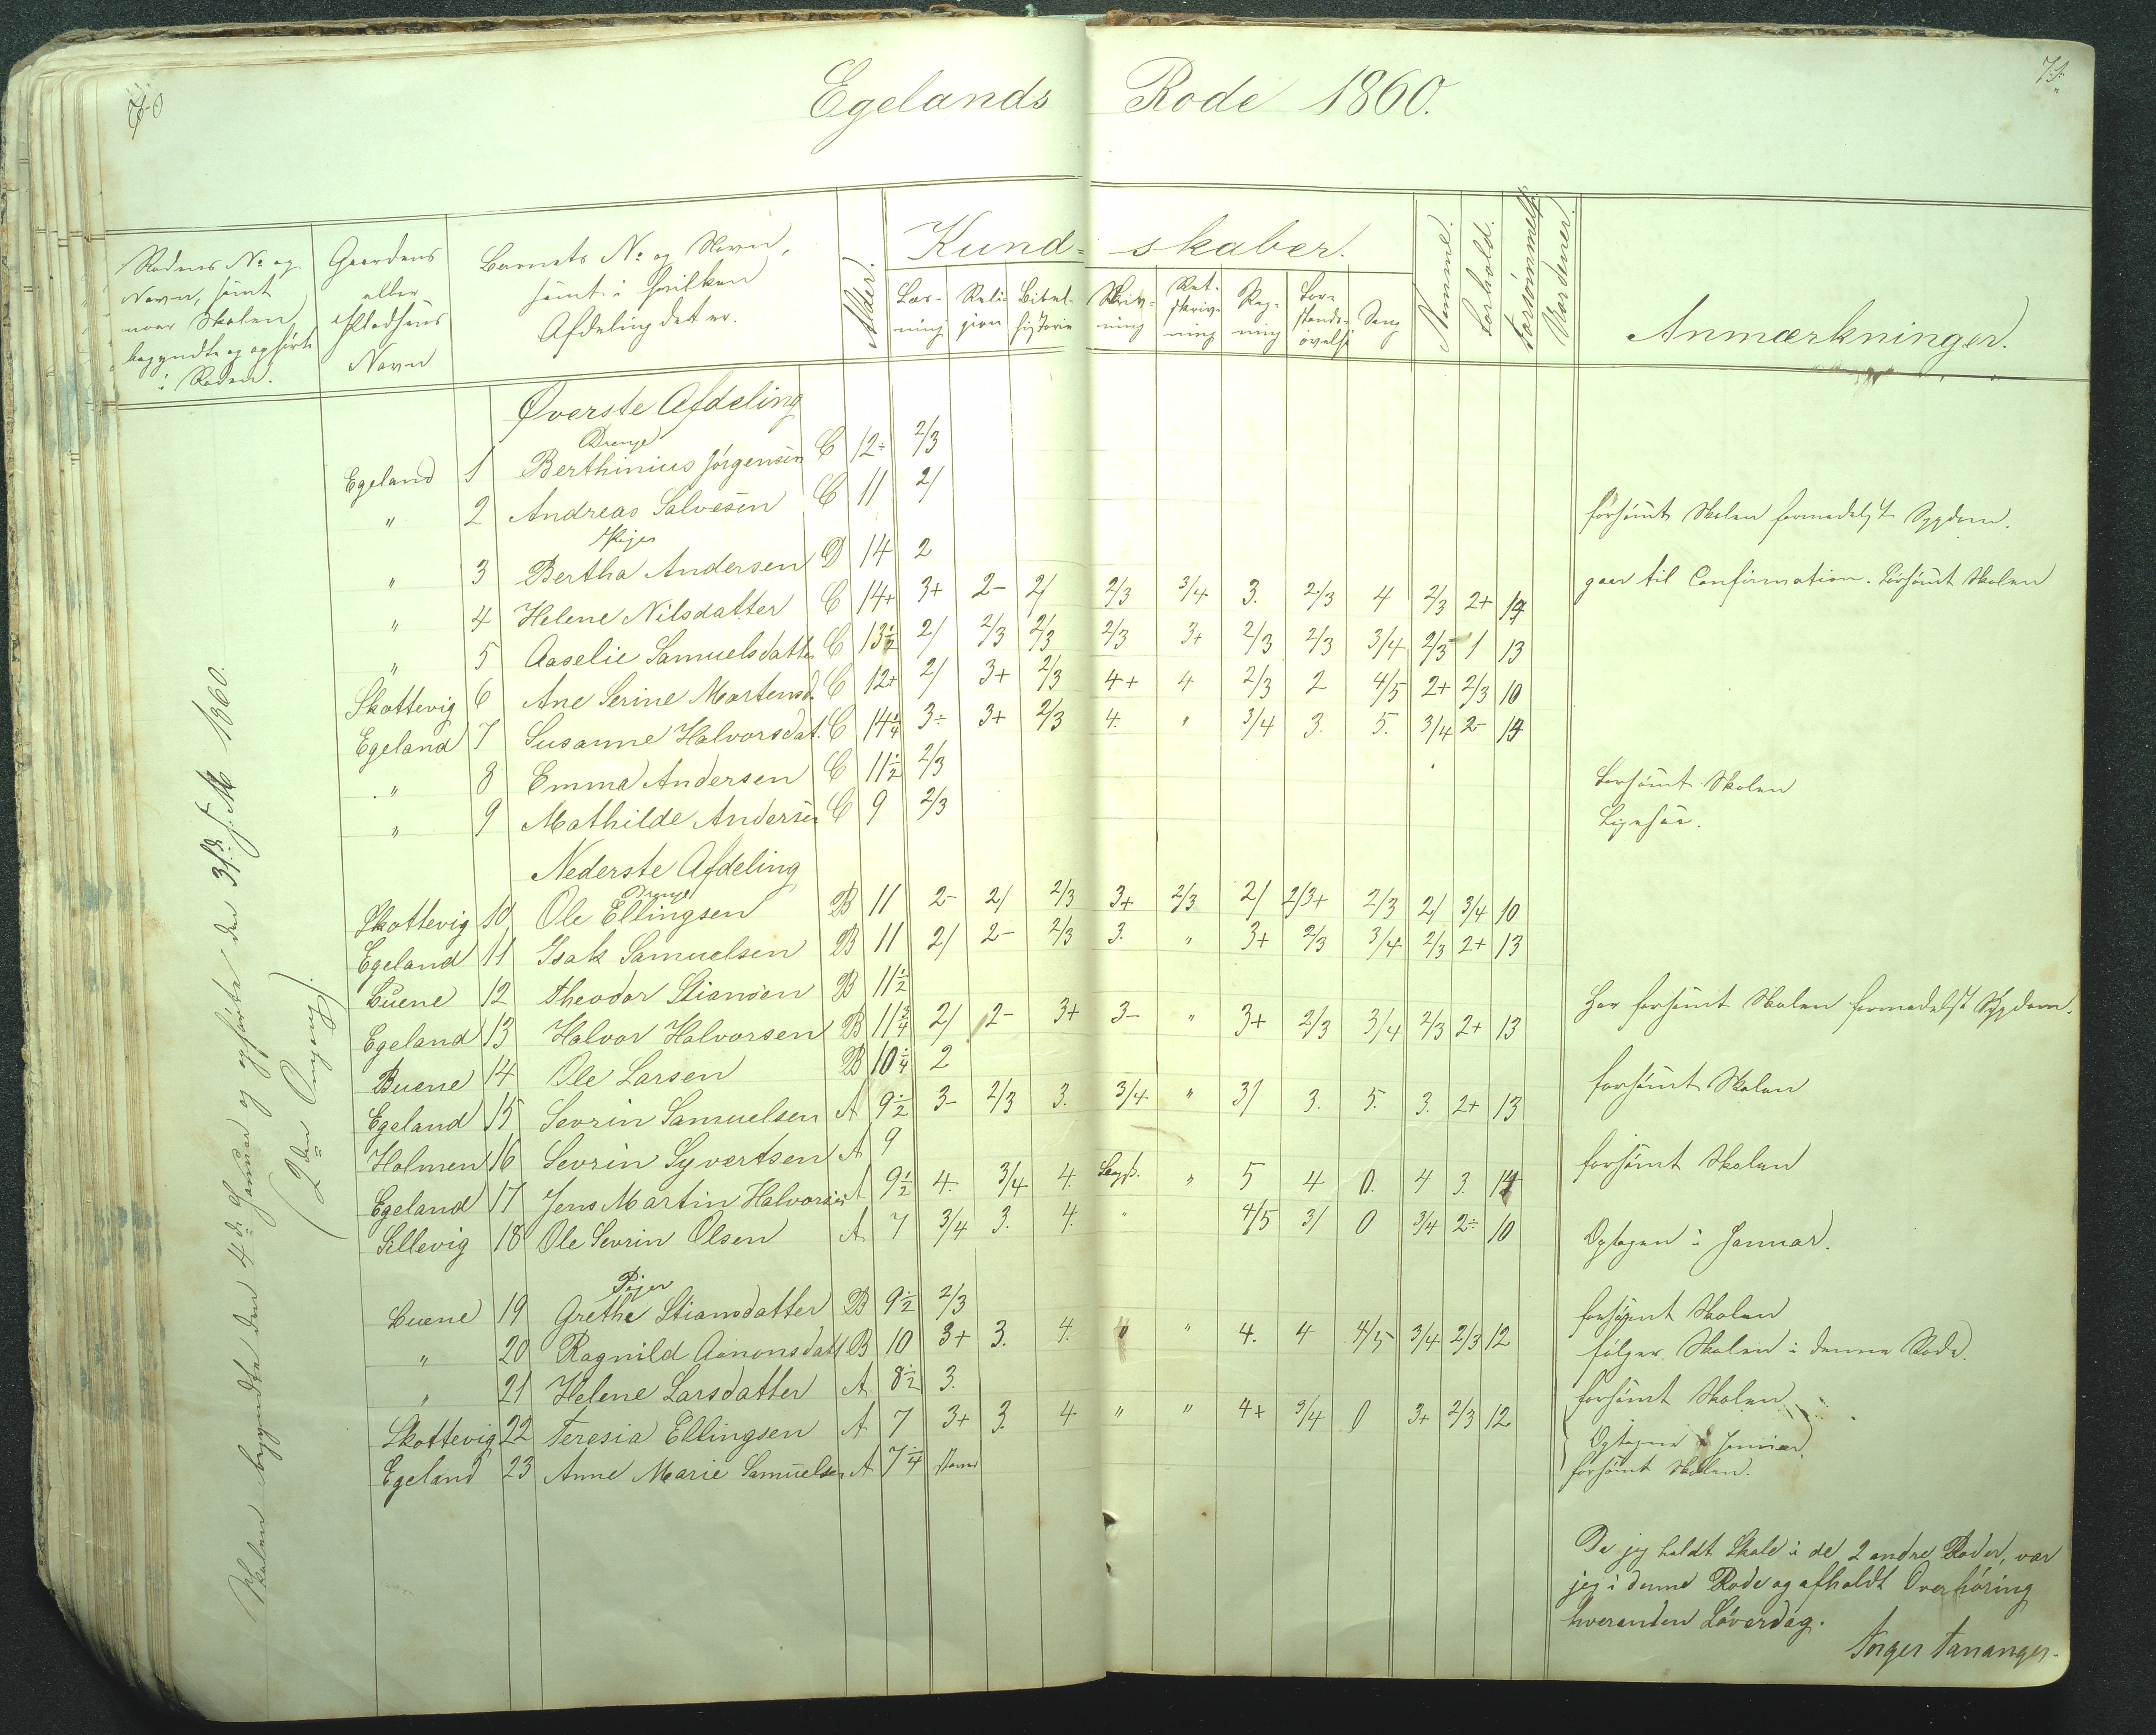 70
71.
Egelands Rode 1860.
Rodens No og
Navn, samt
naar Skolen
begyndte og ophörte
i Roden.
Gaardens
eller
Pladsens
Navn
Barnets No og Navn,
samt i hvilken
Afdeling det er.
Alder.
Kund- skaber.
Læs-
ning
Reli-
gion
Bibel-
historie
Skriv-
ning
Ret-
skriv-
ning
Reg-
ning
For-
stands-
övelse
Sang
Nemme.
Forhold.
Forsömmelse
Anmærkninger.
Skolen begyndte den 4de Januar og ophörte den 31te J. M 1860.
(2den Omgang).
Øverste Afdeling
Drenge
Egeland 1 Berthinius Jörgensen C 12÷ 2/3
" 2 Andreas Salvesen C 11 2/ forsömt Skolen formedelst Sygdom.
Piger
" 3 Bertha Andersen D 14 2 gaar til Confirmation. Forsömt Skolen
" 4 Helene Nilsdatter C 14+ 3+ 2- 2/ 2/3 3/4 3. 2/3 4 2/3 2+ 14
" 5 Aaselie Samuelsdatter C 13½ 2/ 2/3 2/3 2/3 3+ 2/3 2/3 3/4 2/3 1 13
Skottevig 6 Ane Serine Martensd. C 12+ 2/ 3+ 2/3 4+ 4 2/3 2 4/5 2+ 2/3 10
Egeland 7 Susanne Halvorsdat. C 14¼ 3÷ 3+ 2/3 4. " 3/4 3. 5. 3/4 2- 14
" 8 Emma Andersen C 11½ 2/3 Forsömt Skolen
" 9 Mathilde Andersen C 9 2/3 Ligesaa.
Nederste Afdeling
Drenge
Skottevig 10 Ole Ellingsen B 11 2- 2/ 2/3 3+ 2/3 2/ 2/3+ 2/3 2/ 3/4 10
Egeland 11 Isak Samuelsen B 11 2/ 2- 2/3 3. " 3+ 2/3 3/4 2/3 2+ 13
Buene 12 Theodor Stiansen B 11½ Har forsömt Skolen formedelst Sygdom.
Egeland 13 Halvor Halvorsen B 11¾ 2/ 2- 3+ 3- " 3+ 2/3 3/4 2/3 2+ 13
Buene 14 Ole Larsen B 10¼ 2 forsömt Skolen
Egeland 15 Sevrin Samuelsen A 9½ 3- 2/3 3. 3/4 " 3/ 3. 5. 3. 2+ 13
Holmen 16 Sevrin Syvertsen A 9 forsömt Skolen
Egeland 17 Jens Martin Halvorsen A 9½ 4. 3/4 4. " 5 4 0. 4 3. 14
Sillevig 18 Ole Sevrin Olsen A 7 3/4 3. 4. " 4/5 3/ 0 3/4 2÷ 10 Optagen i Januar.
Piger
Buene 19 Grethe Stiansdatter B 9½ 2/3 forsömt Skolen
" 20 Ragnild Aanonsdatt B 10 3+ 3. 4. " " 4. 4 4/5 3/4 2/3 12 følger Skolen i denne Rode.
" 21 Helene Larsdatter A 8½ 3. forsömt Skolen
Skottevig 22 Teresia Ellingsen A 7 3+ 3. 4 " " 4+ 3/4 0 3+ 2/3 12 Optagen i Januar.
Egeland 23 Anne Marie Samuelsen A 7¼ forsömt Skolen.
Da jeg holdt Skole i de 2 andre Roder, var
jeg i denne Rode og afholdt Overhöring
hveranden Löverdag.
Torger Tananger.